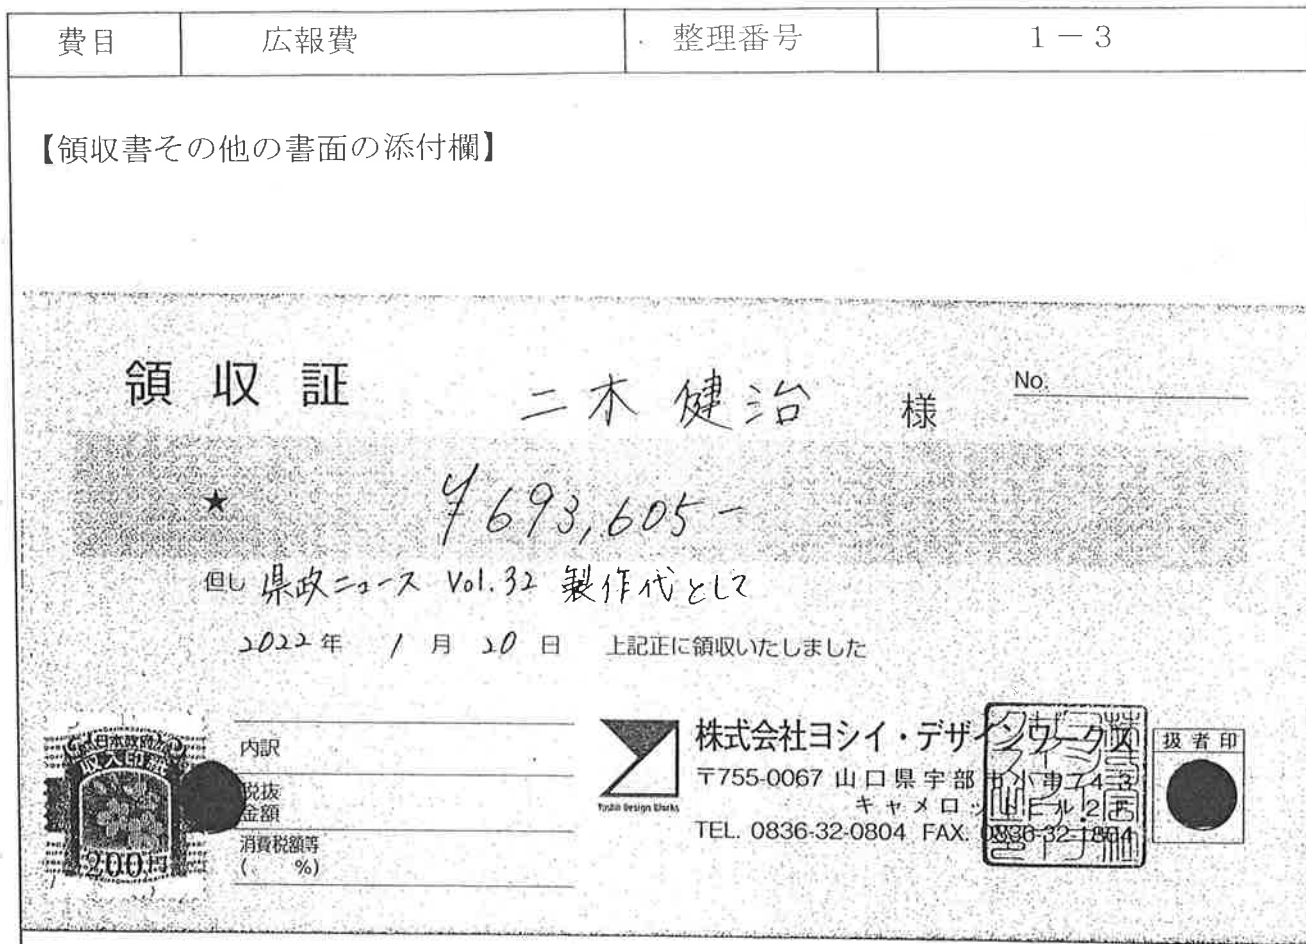 費目 広報費 整理番号 1－3
【領収書その他の書面の添付欄】
領収証 二木 健治 様 No.
★ ¥693,605-
但し 県政ニュース Vol.32 製作代として
2022年 1月 20日 上記正に領収いたしました
日本政府
収入印紙
200円
内訳
税抜金額
消費税額等
( %)
Yoshii Design Works
株式会社ヨシイ・デザインワークス
〒755-0067 山口県宇部市小串74-3
キャメロットビル2F
TEL. 0836-32-0804 FAX. 0836-32-1804
扱者印